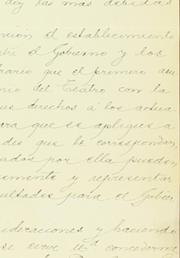 doy las mas debidas
nion el establecimiento
el Gobierno y los
rario que el primero au
nio del Teatro con la
sus derechos a los actua
ara que se aplique a
des que le correspondan,
por ella puedan
samente y representar
cultades para el Gober
sideraciones y haciendo
se sirve concederme